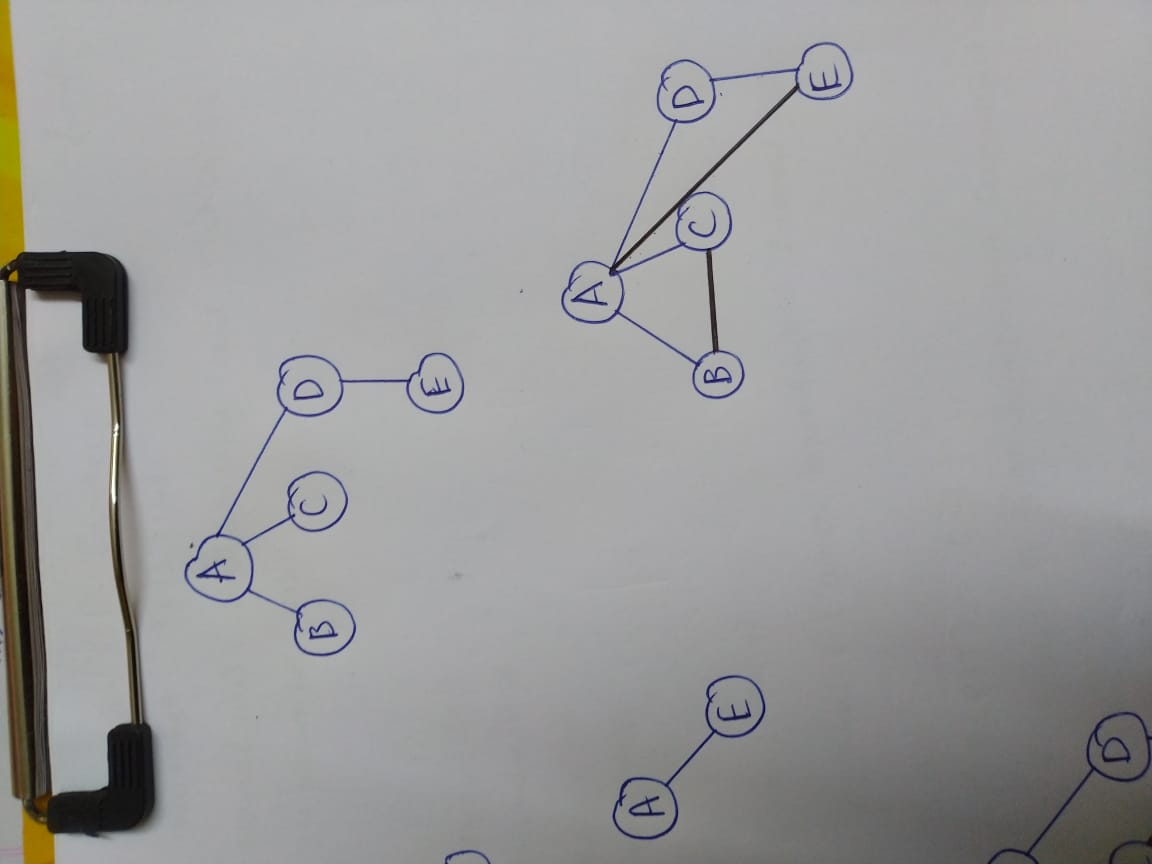 A
B C D
E
A
B C D
E
A
E
D